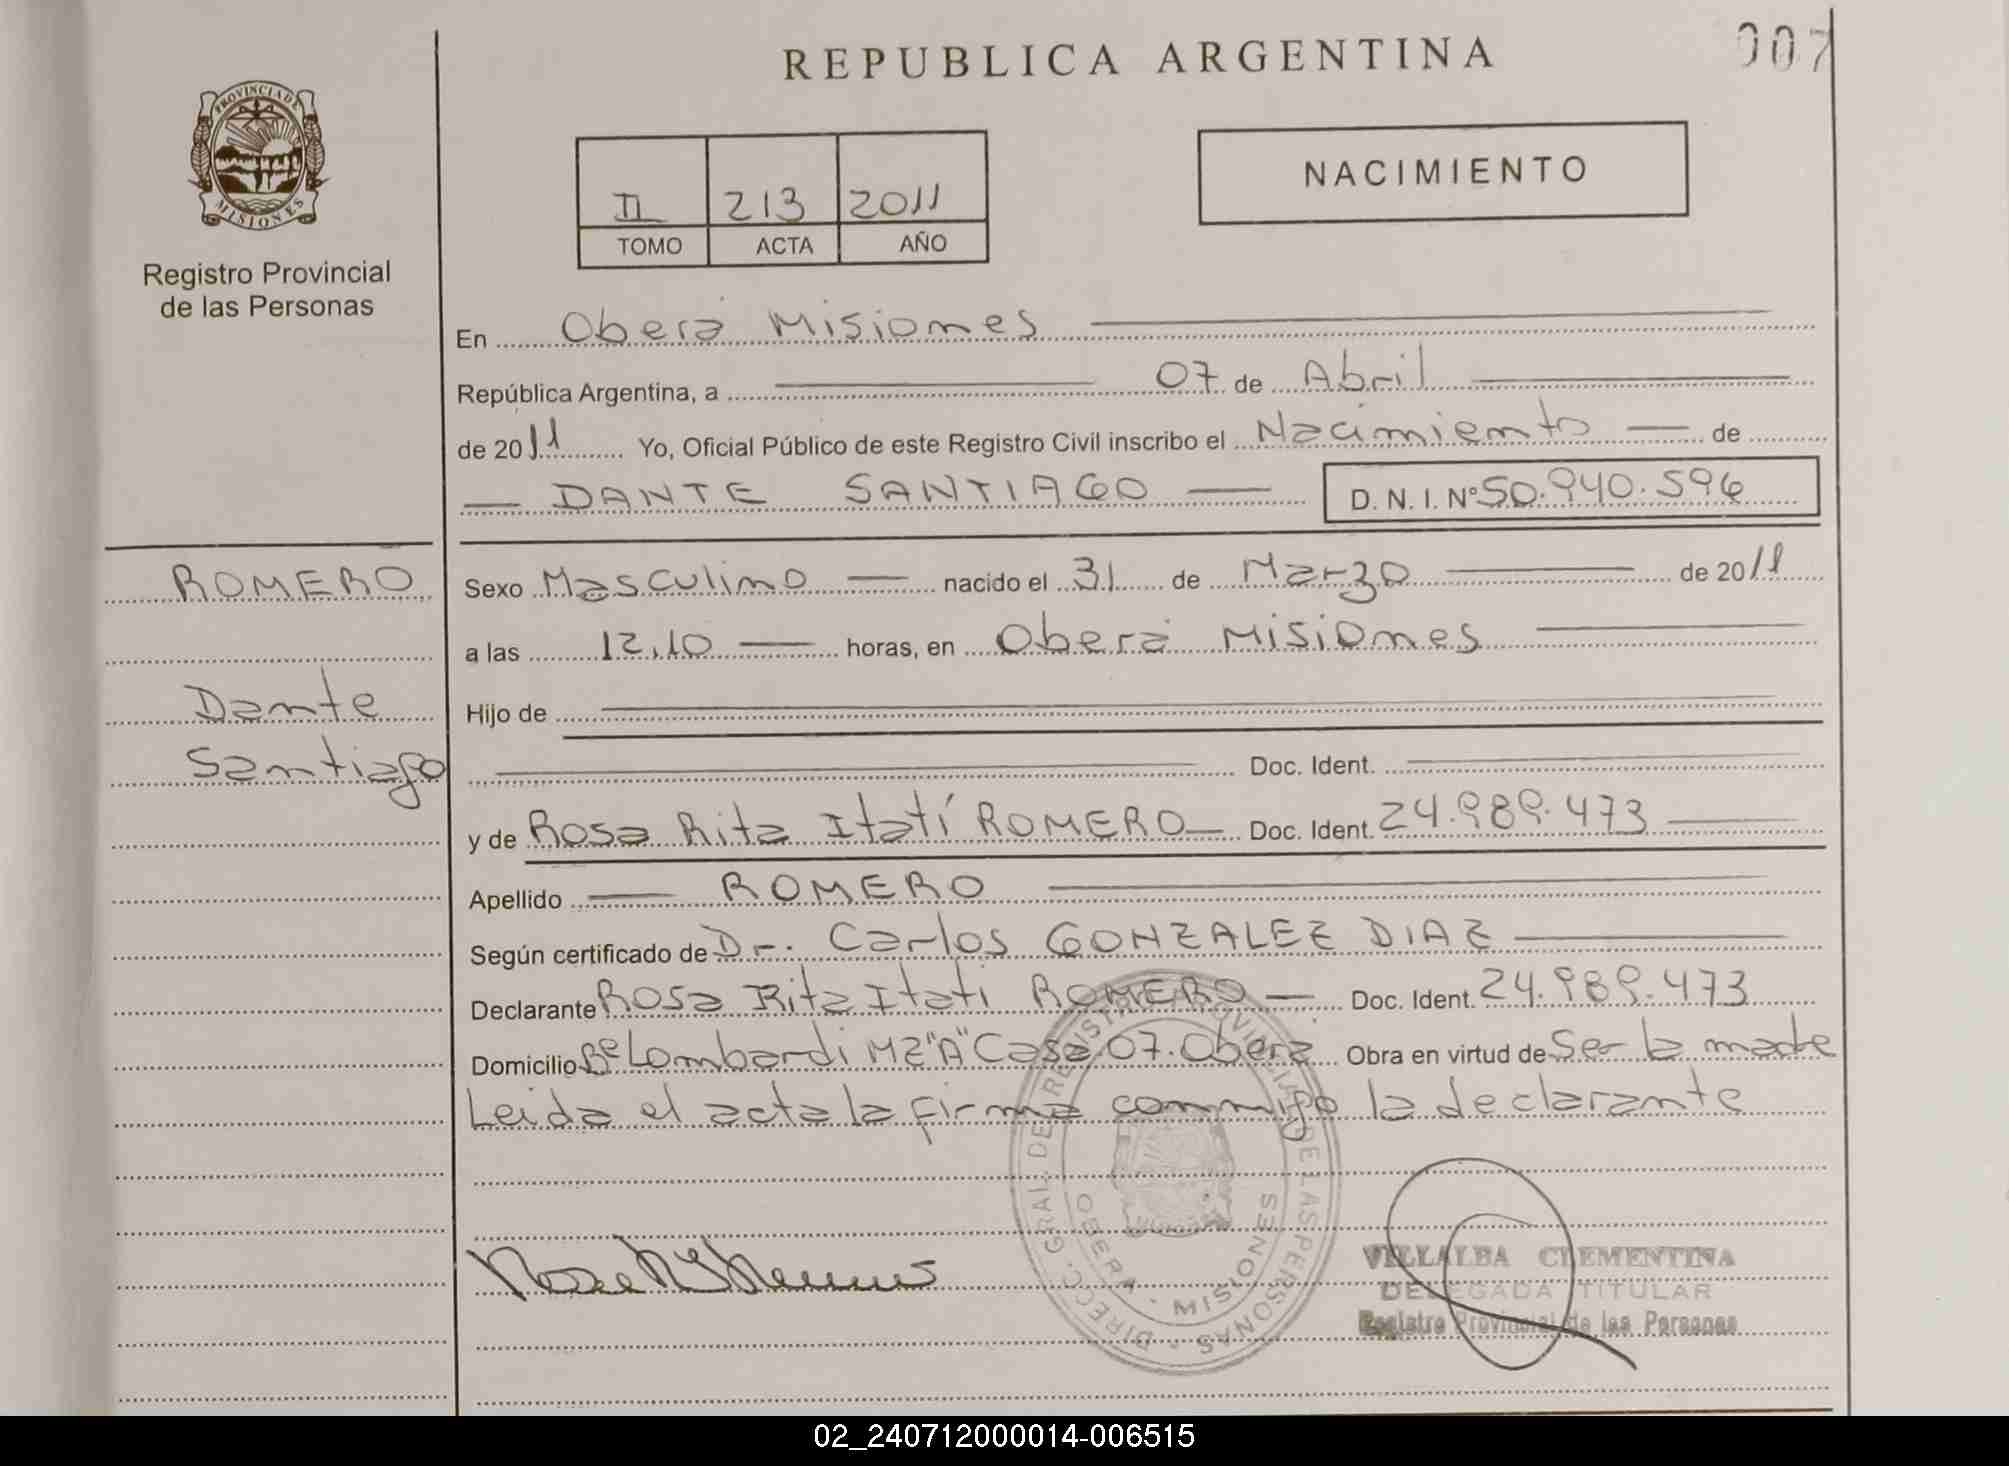 REPUBLICA ARGENTINA
007
PROVINCIA DE
MISIONES
Registro Provincial
de las Personas
II 213 2011
TOMO ACTA AÑO
NACIMIENTO
En Oberá Misiones
República Argentina, a 07 de Abril
de 2011 Yo, Oficial Público de este Registro Civil inscribo el Nacimiento de
DANTE SANTIAGO D. N. I. Nº 50.940.596
ROMERO
Dante
Santiago
Sexo Masculino nacido el 31 de Marzo de 2011
a las 12,10 horas, en Oberá Misiones
Hijo de
Doc. Ident.
y de Rosa Rita Itatí ROMERO Doc. Ident. 24.989.473
Apellido ROMERO
Según certificado de Dr. Carlos GONZALEZ DIAZ
Declarante Rosa Rita Itati ROMERO Doc. Ident. 24.989.473
Domicilio Bº Lombardi MZ "A" Casa 07. Oberá Obra en virtud de Ser la madre
Leida el acta la firma conmigo la declarante
DIRECC. GRAL. DE REGISTRO PROVINCIAL DE LAS PERSONAS
OBERA - MISIONES
VILLALBA CLEMENTINA
DELEGADA TITULAR
Registro Provincial de las Personas
02_240712000014-006515